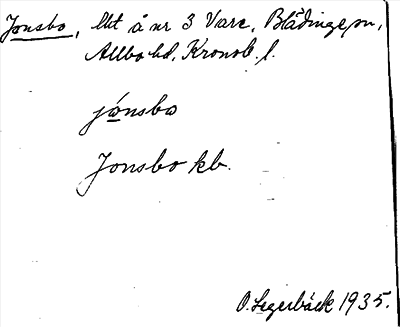 Jonsbo, lht å nr 3 Vare, Blädinge sn,
Allbo hd, Kronob. l.
jonsbo
Jonsbo kb.
O. Segerbäck 1935.